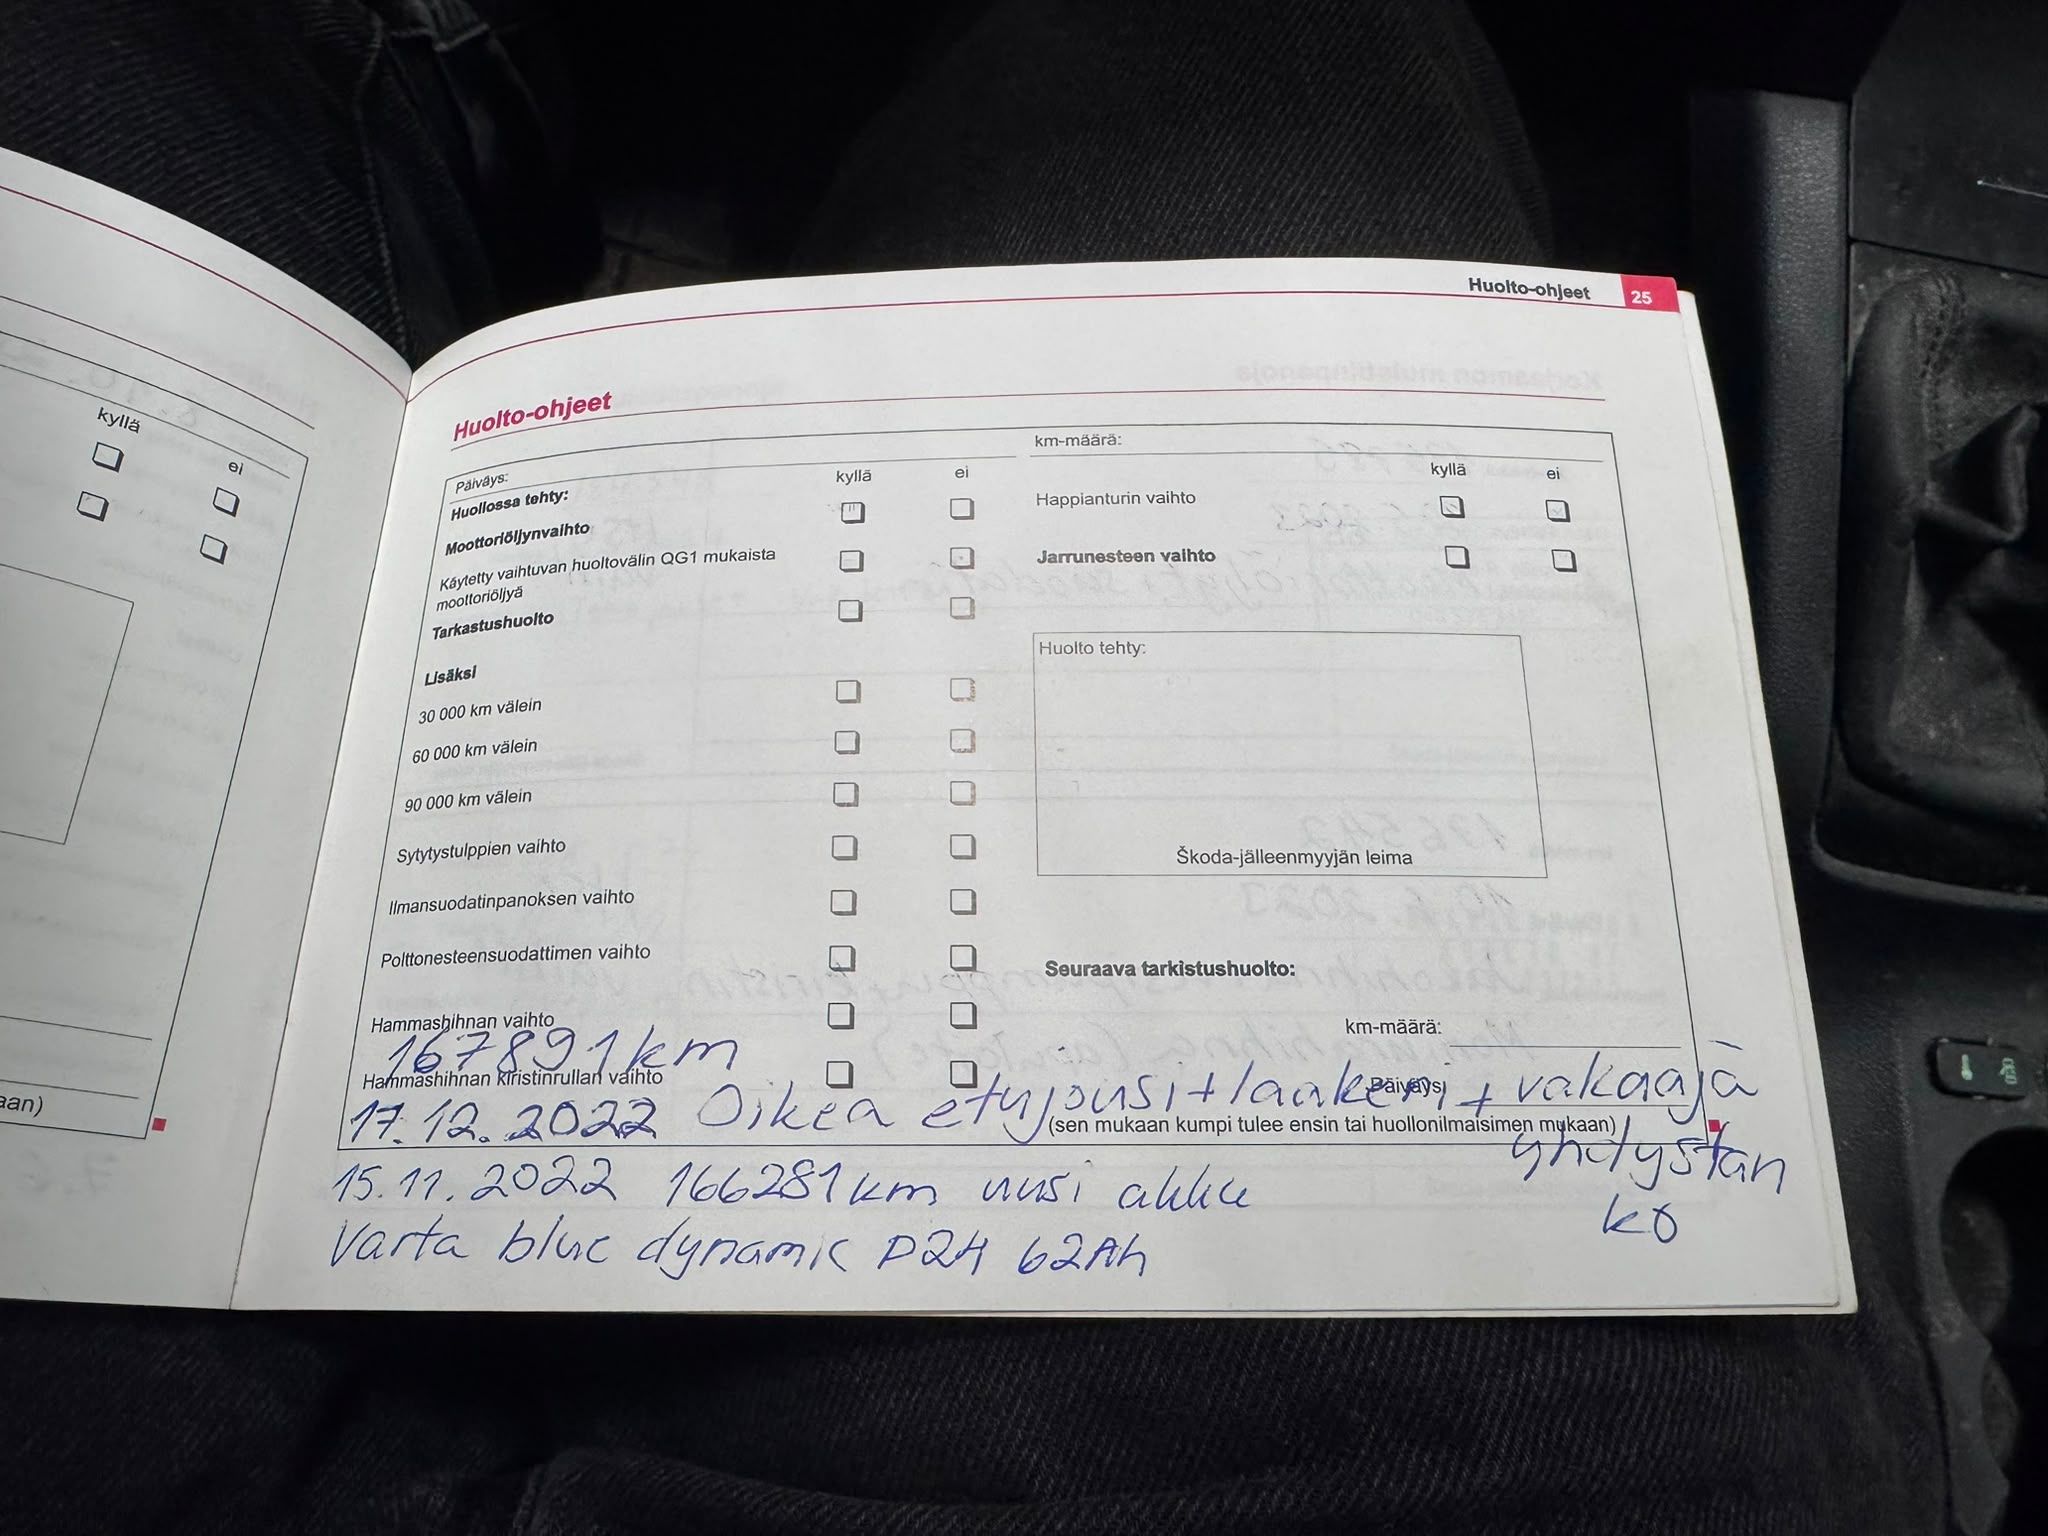 Huolto-ohjeet 25
kyllä
ei
aan)
Huolto-ohjeet
Päiväys:
km-määrä:
Huollossa tehty:
kyllä ei
kyllä ei
Moottoriöljynvaihto
Käytetty vaihtuvan huoltovälin QG1 mukaista
moottoriöljyä
Tarkastushuolto
Lisäksi
30 000 km välein
60 000 km välein
90 000 km välein
Sytytystulppien vaihto
Ilmansuodatinpanoksen vaihto
Polttonesteensuodattimen vaihto
Hammashihnan vaihto
Hammashihnan kiristinrullan vaihto
Happianturin vaihto
Jarrunesteen vaihto
Huolto tehty:
Škoda-jälleenmyyjän leima
Seuraava tarkistushuolto:
km-määrä:
Päiväys
(sen mukaan kumpi tulee ensin tai huollonilmaisimen mukaan)
167891km
17.12.2022 Oikea etujousi+laakeri + vakaaja
yhdystan
ko
15.11.2022 166281km uusi akku
Varta blue dynamic D24 62Ah